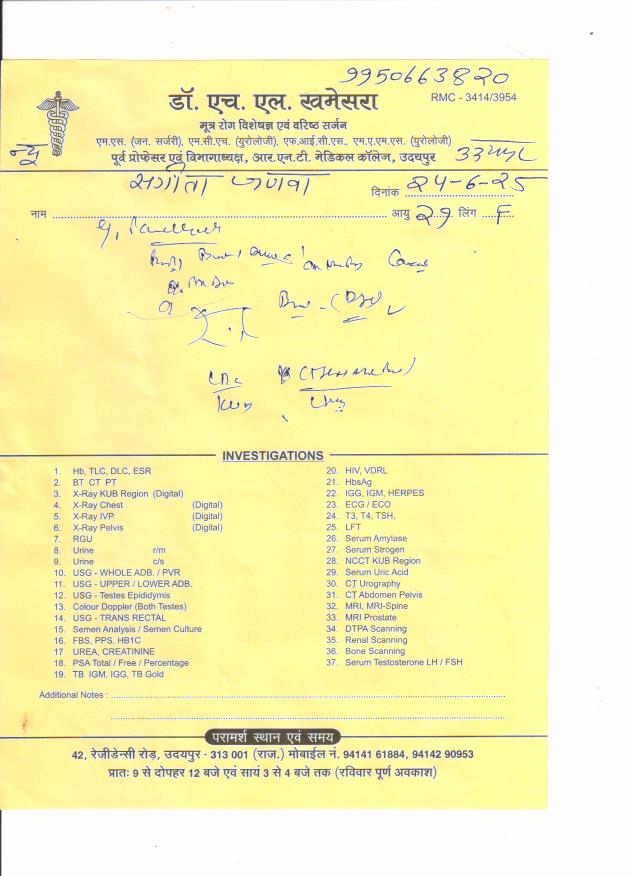 9950663820
डॉ. एच. एल. खमेसरा
RMC - 3414/3954
मूत्र रोग विशेषज्ञ एवं वरिष्ठ सर्जन
एम.एस. (जन. सर्जरी), एम.सी.एच. (युरोलोजी), एफ.आई.सी.एस., एम.ए.एम.एस. (युरोलोजी)
न्यू पूर्व प्रोफेसर एवं विभागाध्यक्ष, आर.एन.टी. मेडिकल कॉलेज, उदयपुर
दिनांक 24-6-25
नाम आयु 29 लिंग F
INVESTIGATIONS
1. Hb, TLC, DLC, ESR
2. BT CT PT
3. X-Ray KUB Region (Digital)
4. X-Ray Chest (Digital)
5. X-Ray IVP (Digital)
6. X-Ray Pelvis (Digital)
7. RGU
8. Urine r/m
9. Urine c/s
10. USG - WHOLE ADB. / PVR
11. USG - UPPER / LOWER ADB.
12. USG - Testes Epididymis
13. Colour Doppler (Both Testes)
14. USG - TRANS RECTAL
15. Semen Analysis / Semen Culture
16. FBS, PPS, HB1C
17 UREA, CREATININE
18. PSA Total / Free / Percentage
19. TB IGM, IGG, TB Gold
20. HIV, VDRL
21. HbsAg
22. IGG, IGM, HERPES
23. ECG / ECO
24. T3, T4, TSH,
25. LFT
26. Serum Amylase
27. Serum Strogen
28. NCCT KUB Region
29. Serum Uric Acid
30. CT Urography
31. CT Abdomen Pelvis
32. MRI, MRI-Spine
33. MRI Prostate
34. DTPA Scanning
35. Renal Scanning
36. Bone Scanning
37. Serum Testosterone LH / FSH
Additional Notes :
परामर्श स्थान एवं समय
42, रेजीडेन्सी रोड़, उदयपुर - 313 001 (राज.) मोबाईल नं. 94141 61884, 94142 90953
प्रातः 9 से दोपहर 12 बजे एवं सायं 3 से 4 बजे तक (रविवार पूर्ण अवकाश)